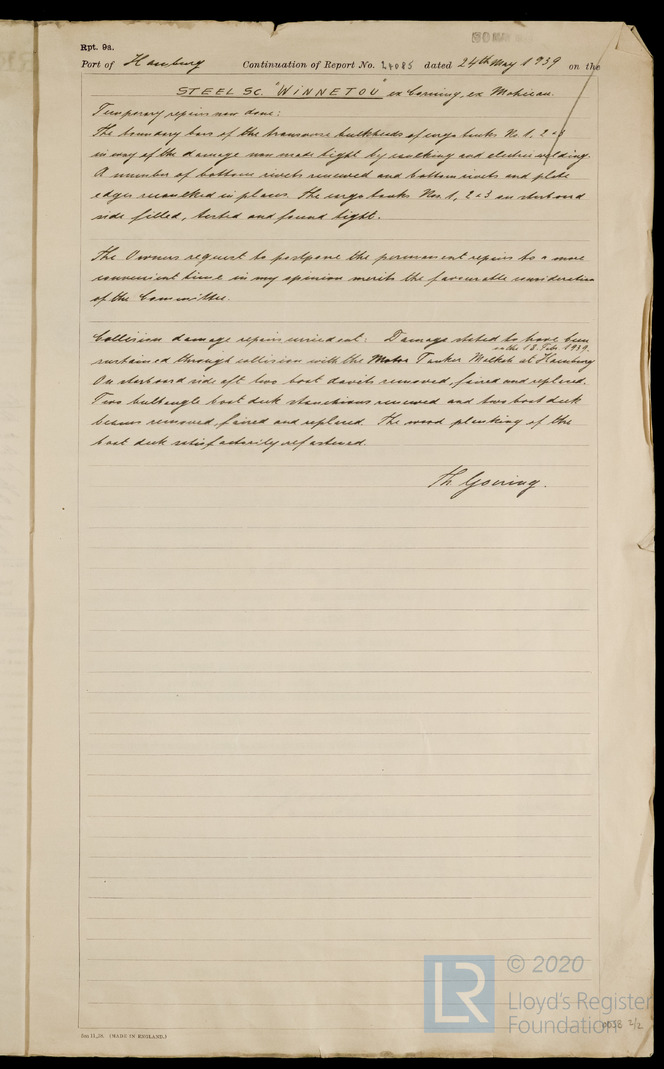 Rpt. 9a.
Port of Hamburg Continuation of Report No. 24085 dated 24th May 1939 on the
STEEL SC. "WINNETOU" ex Corning, ex Mohican.
Temporary repairs now done:
The boundary bars of the transverse bulkheads of cargo tanks No. 1, 2 & 3
in way of the damage now made tight by caulking and electric welding.
A number of bottom rivets renewed and bottom rivets and plate
edges recaulked in places. The cargo tanks Nos. 1, 2 & 3 on starboard
side filled, tested and found tight.
The Owners request to postpone the permanent repairs to a more
convenient time in my opinion merits the favourable consideration
of the Committee.
Collision damage repairs carried out: Damage stated to have been
on the 18. Feb. 1939.
sustained through collision with the Motor Tanker at Hamburg
On starboard side aft two boat davits removed, faired and replaced.
Two bulbangle boat deck stanchions renewed and two boat deck
beams removed, faired and replaced. The wood planking of the
boat deck satisfactorily refastened.
Th. Goering.
(MADE IN ENGLAND.)
LR
© 2020
Lloyd's Register
Foundation
0038 2/2